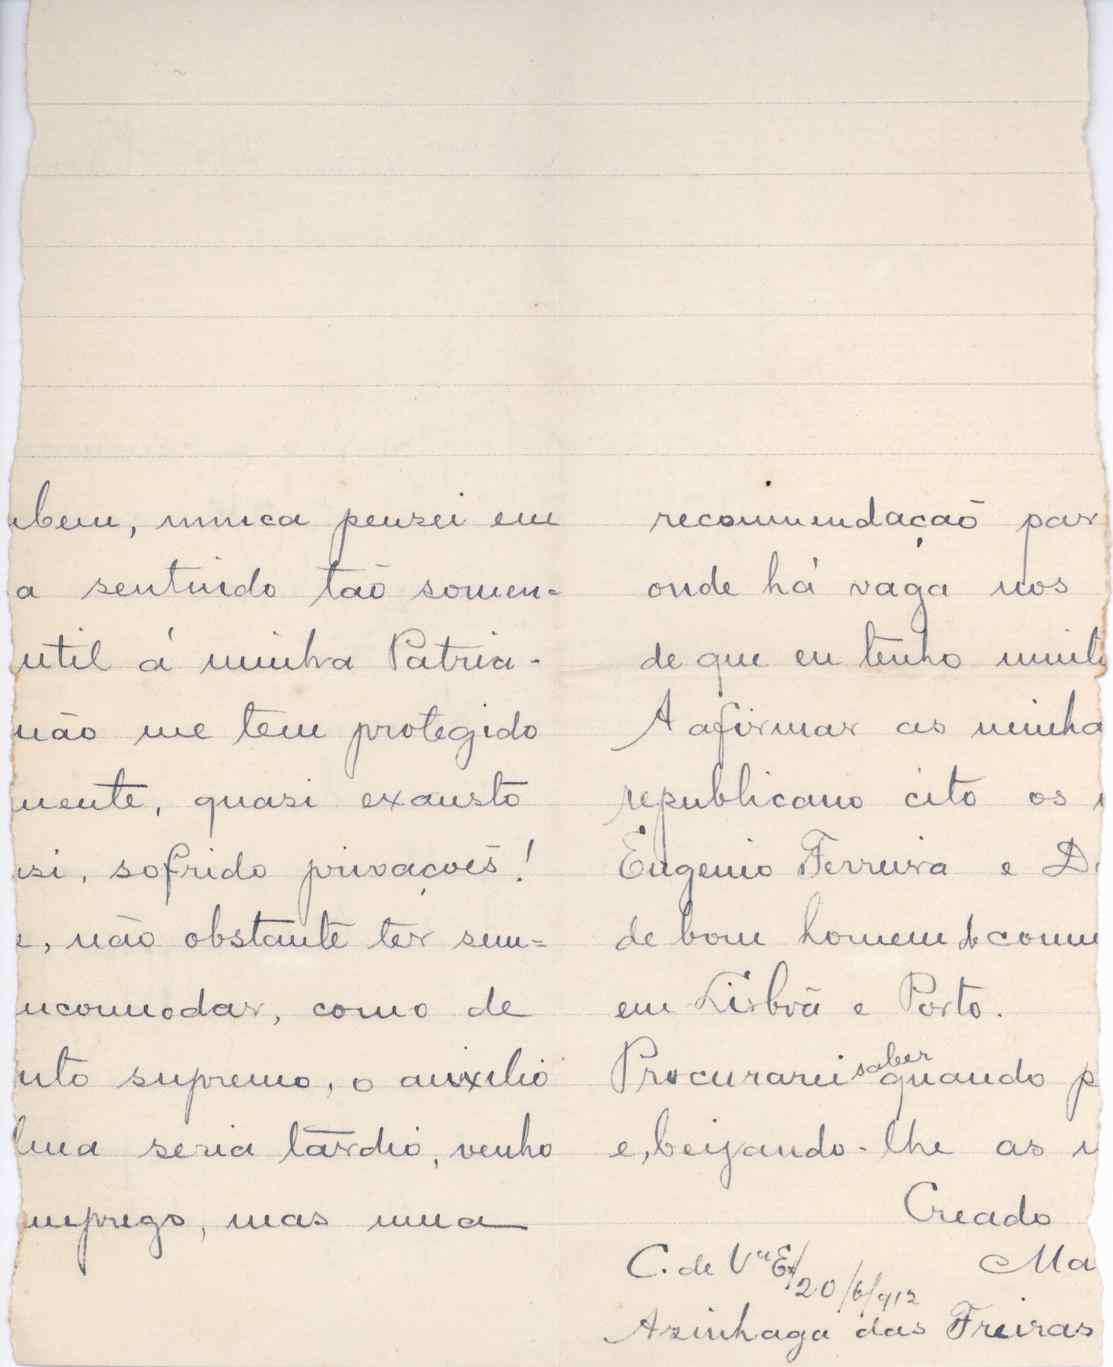 bem, nunca pensei em
a sentindo tão somen=
util á minha Patria.
não me tem protegido
mente, quasi exausto
si, sofrido privações!
e, não obstante ter sem=
ncomodar, como de
nto supremo, o auxilio
lma seria tardio, venho
mprego, mas uma
recommendação par
onde há vaga nos
de que eu tenho muit
A afirmar as minha
republicano cito os
Eugenio Ferreira e D
de bom homem de comm
em Lisbôa e Porto.
Procurarei saber quando p
e, beijando-lhe as
Creado
C. de V. Ex. Ma
20/6/912
Azinhaga das Freiras